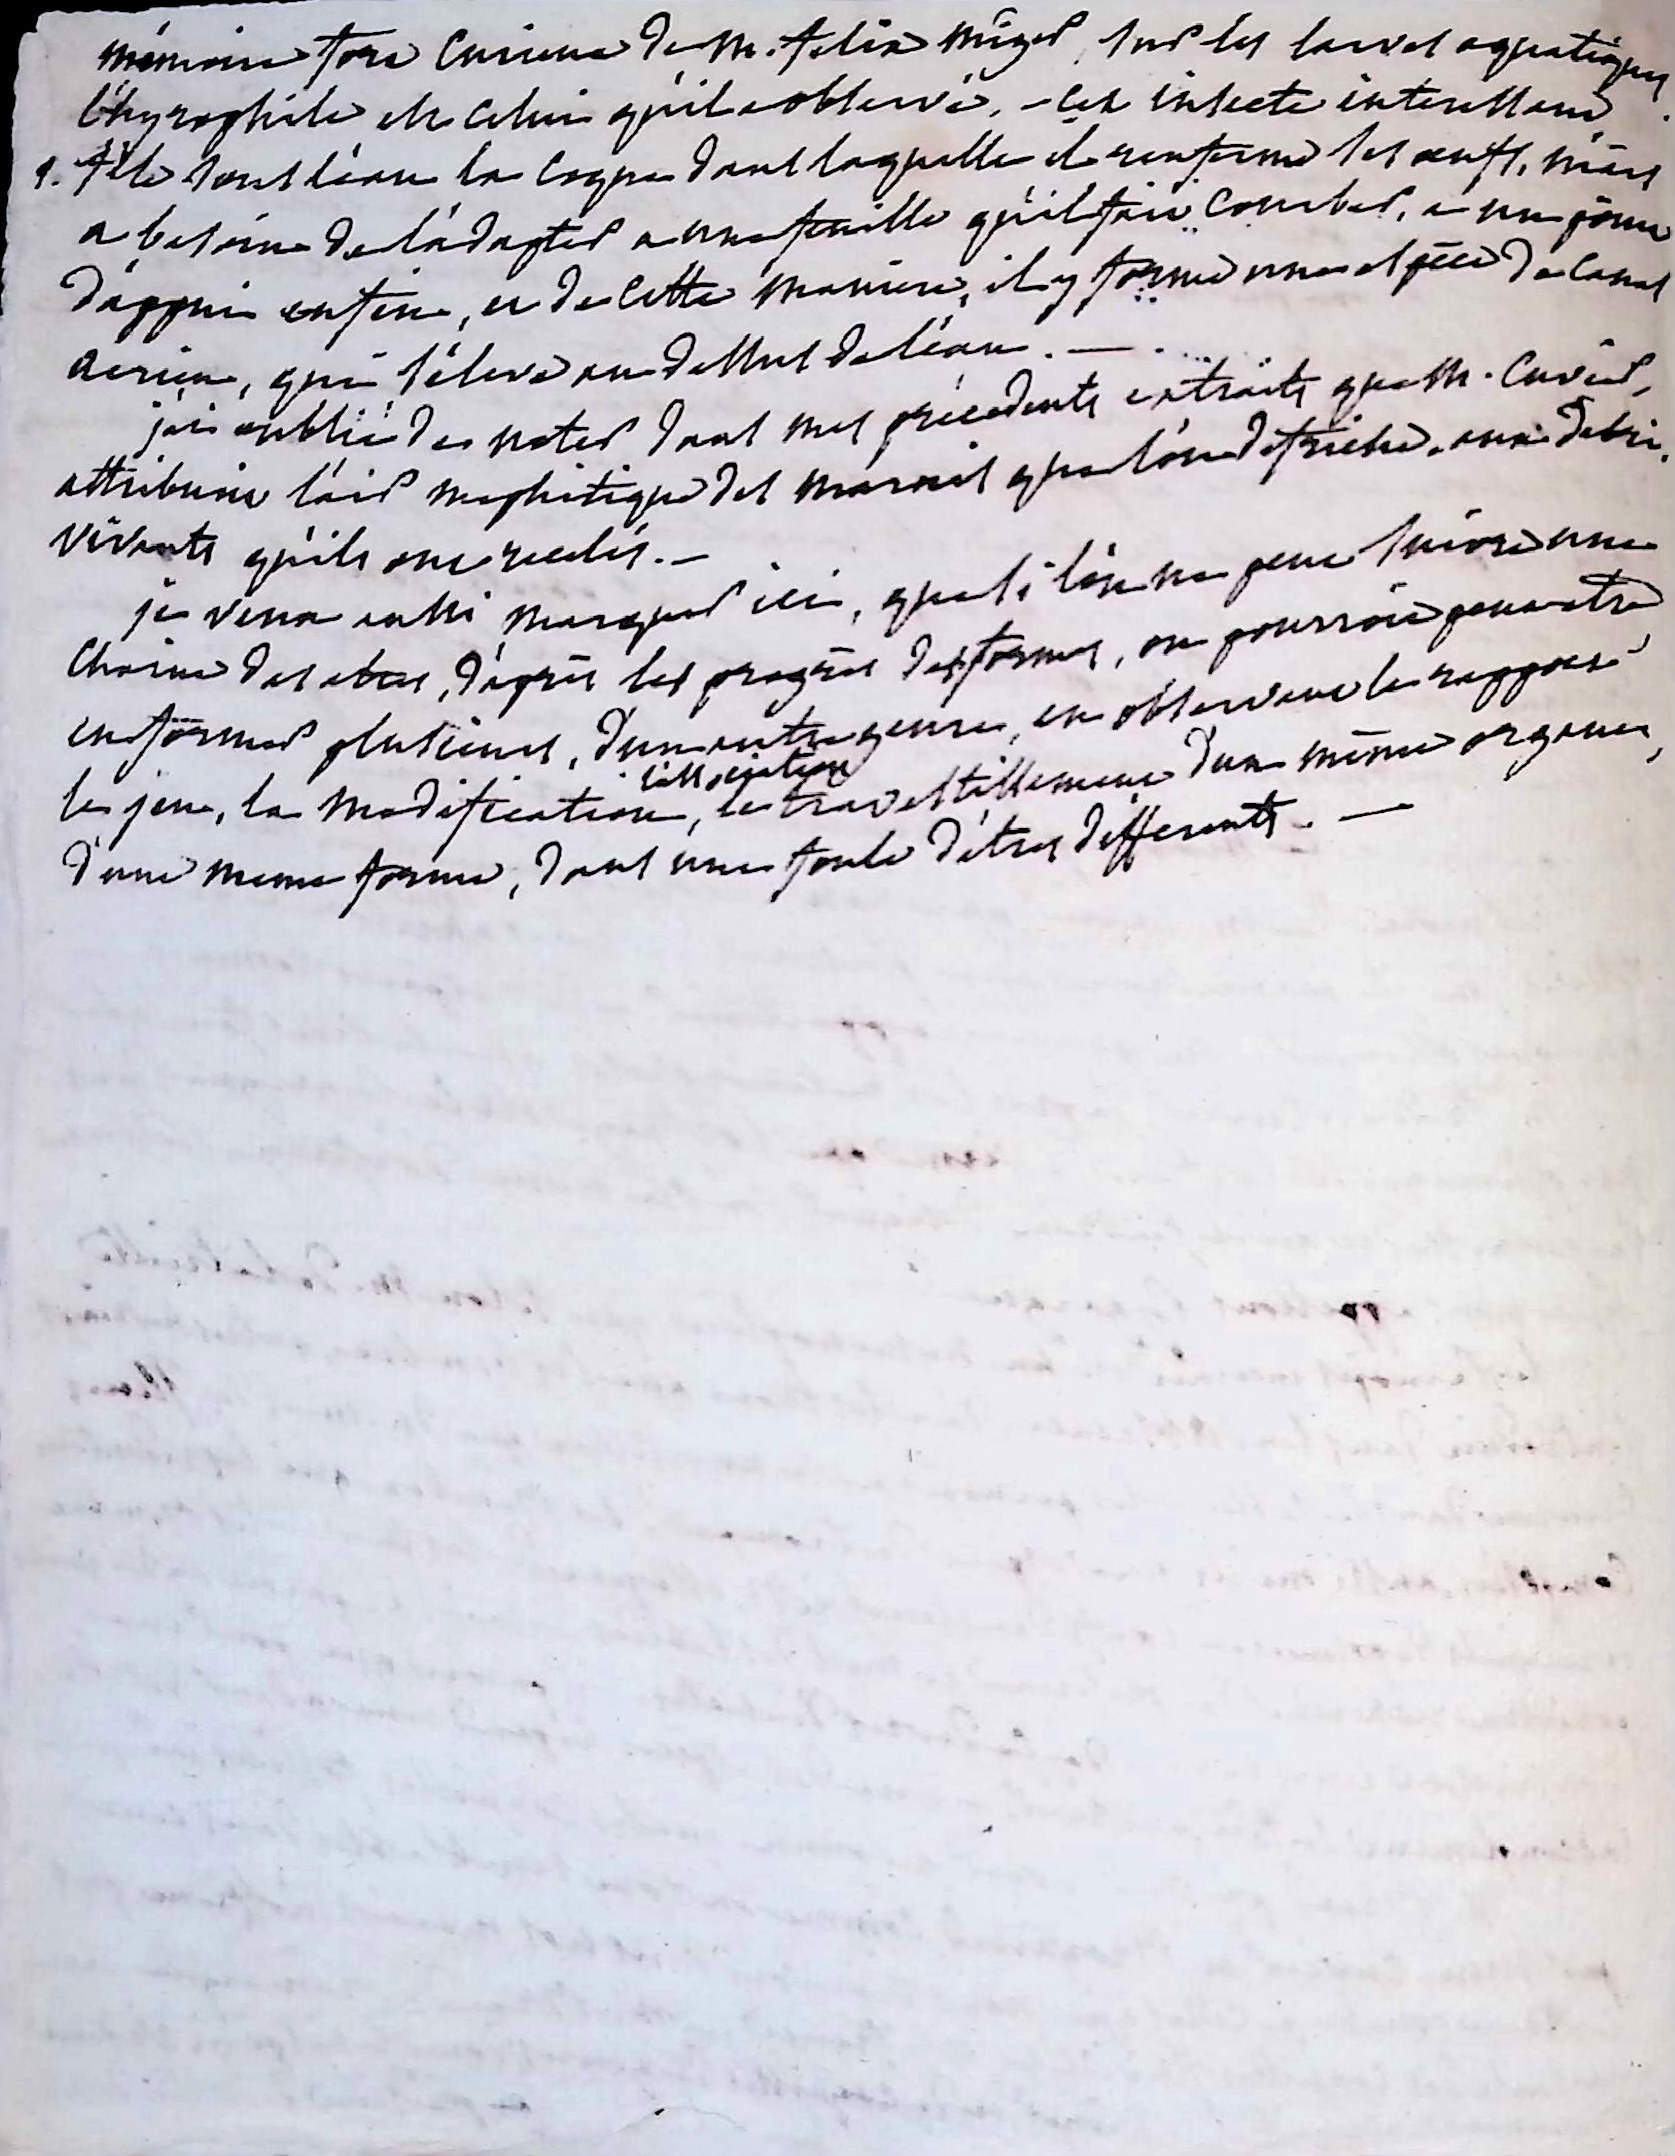 mémoire fort curieux de M. felix miger, sur les larves aquatiques.
l'hyrophile est celui qu'il a observé. – cet insecte interessant
file sous l'eau la coque dans laquelle il renferme ses œufs. mais
a besoin de l'adapter a une feuille qu'il fait courber, a un point
d'appui enfin, et de cette maniere, il y forme une espéce de canal
aerien, qui s'éleve au dessus de l'eau. —
j'ai oublié de noter dans mes précedents extraits que M. Cuvier,
attribuoit l'air mephitique des marais que l'on defriche, aux debris
vivants qu'ils ont recelés. –
je veux aussi marquer ici, que si l'on ne peut suivre une
chaine des etres, d'après les progrès des formes, on pourroit peut etre
en former plusieurs, d'un autre genre, en observant le rapport
le jeu, la modification, l'association le travestissement d'un même organe,
d'une meme forme, dans une foule d'êtres differents. —